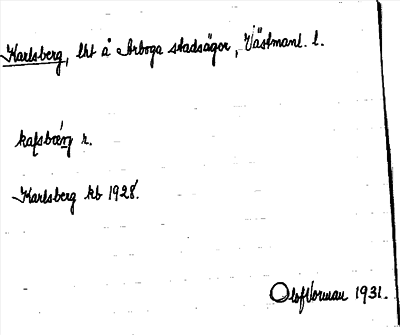 Karlsberg, lht å Arboga stadsäger, Västmanl. l.
r.
Karlsberg kb 1928.
Olof Norman 1931.